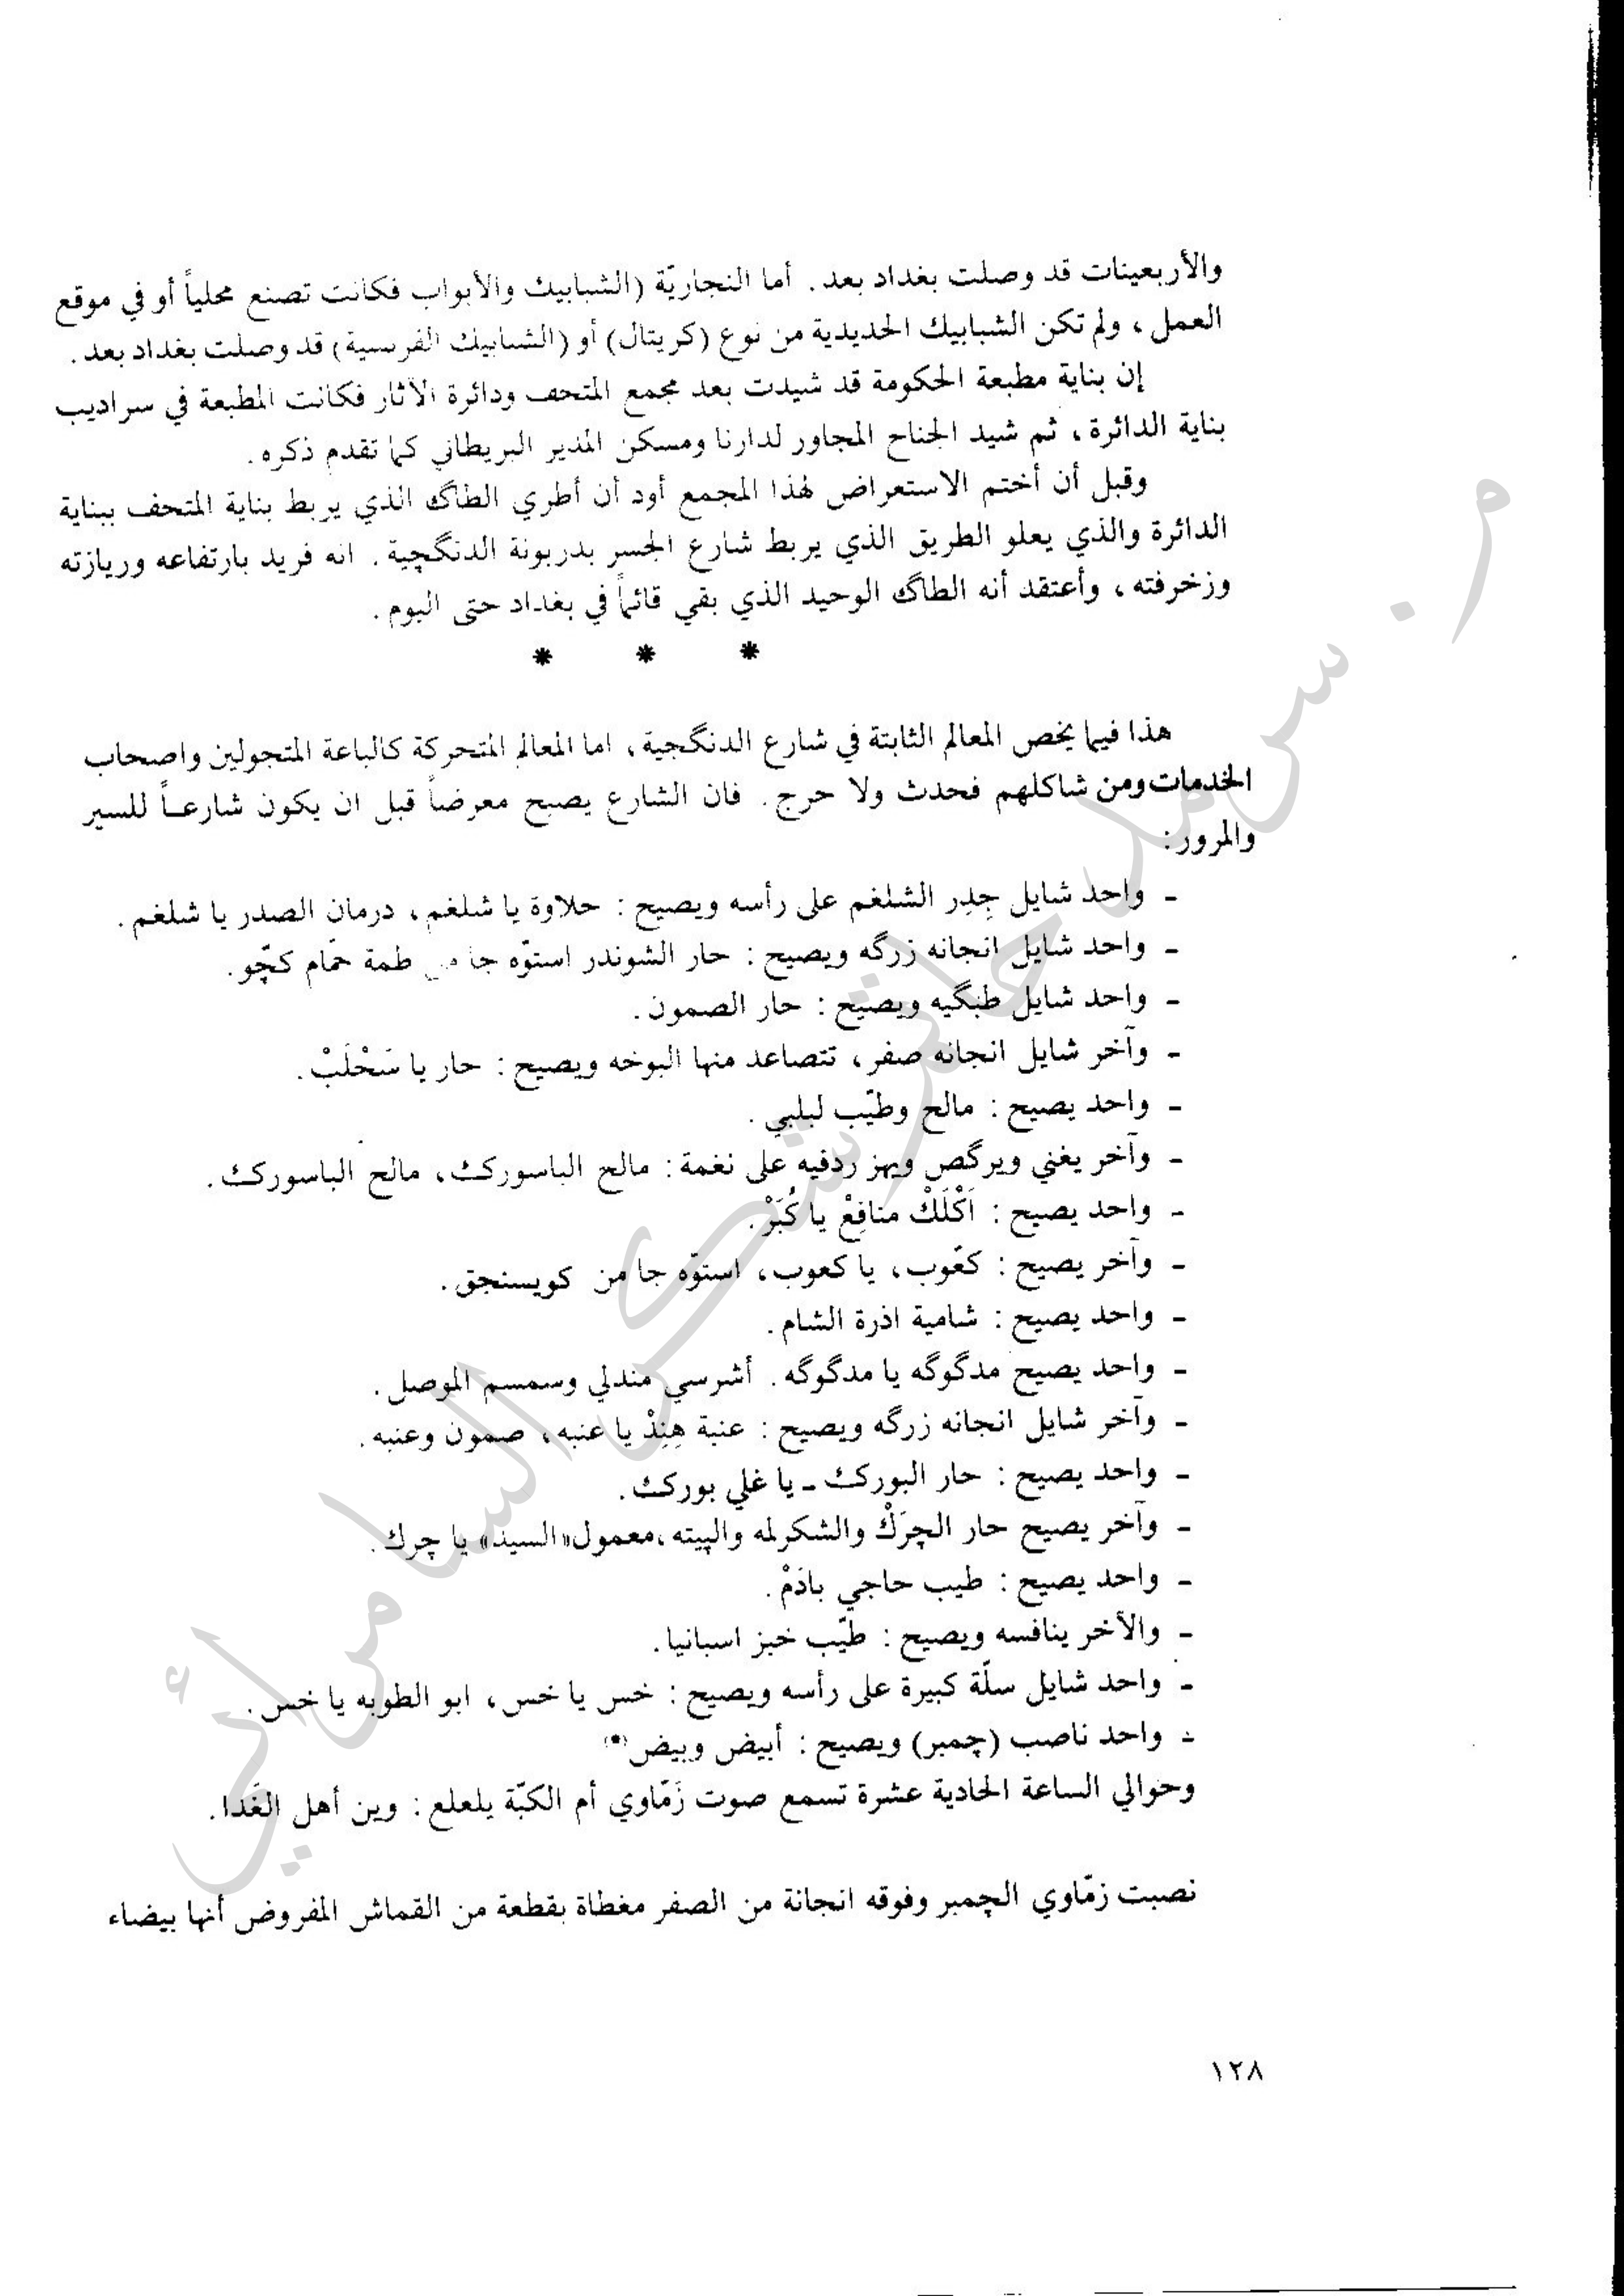 والأربعينات قد وصلت بغداد بعد. أما النجاريّة (الشبابيك والأبواب فكانت تصنع محلياً أو في موقع
العمل، ولم تكن الشبابيك الحديدية من نوع (كريتال) أو (الشبابيك الفرنسية) قد وصلت بغداد بعد.
إن بناية مطبعة الحكومة قد شيدت بعد مجمع المتحف ودائرة الآثار فكانت المطبعة في سراديب
بناية الدائرة، ثم شيد الجناح المجاور لدارنا ومسكن المدير البريطاني كما تقدم ذكره.
وقبل أن أختم الاستعراض لهذا المجمع أود أن أطري الطاگ الذي يربط بناية المتحف ببناية
الدائرة والذي يعلو الطريق الذي يربط شارع الجسر بدربونة الدنگچية. انه فريد بارتفاعه وريازته
وزخرفته، وأعتقد أنه الطاگ الوحيد الذي بقي قائماً في بغداد حتى اليوم.
* * *
هذا فيما يخص المعالم الثابتة في شارع الدنگجية، اما المعالم المتحركة كالباعة المتجولين واصحاب
الخدمات ومن شاكلهم فحدث ولا حرج. فان الشارع يصبح معرضاً قبل ان يكون شارعاً للسير
والمرور:
- واحد شايل جِدِر الشلغم على رأسه ويصيح: حلاوة يا شلغم، درمان الصدر يا شلغم.
- واحد شايل انجانه زرگه ويصيح: حار الشوندر استوّه جا من طمة حمّام كچّو.
- واحد شايل طبگيه ويصيح: حار الصمون.
- وآخر شايل انجانه صفر، تتصاعد منها البوخه ويصيح: حار يا سَحْلَبْ.
- واحد يصيح: مالح وطيّب لبلبي.
- وآخر يغني ويرگص ويهز ردفيه على نغمة: مالح الباسورك، مالح الباسورك.
- واحد يصيح: اَكْلَكْ منافِعْ يا كُبَرْ.
- وآخر يصيح: كعّوب، يا كعوب، استوّه جا من كويسنجق.
- واحد يصيح: شامية اذرة الشام.
- واحد يصيح مدگوگه يا مدگوگه. أشرسي مندلي وسمسم الموصل.
- وآخر شايل انجانه زرگه ويصيح: عنبة هِنِدْ يا عنبه، صمون وعنبه.
- واحد يصيح: حار البورك - يا غلي بورك.
- وآخر يصيح حار الچرَكْ والشكرلمه والپيته، معمول «السيد» يا چرك.
- واحد يصيح: طيب حاجي بادَمْ.
- والآخر ينافسه ويصيح: طيّب خبز اسبانيا.
- واحد شايل سلّة كبيرة على رأسه ويصيح: خس يا خس، ابو الطوبه يا خس.
- واحد ناصب (چمبر) ويصيح: أبيض وبيض(*)
وحوالي الساعة الحادية عشرة تسمع صوت زَمّاوي أم الكبّة يلعلع: وين أهل الغَدا.
نصبت زمّاوي الچمبر وفوقه انجانة من الصفر مغطاة بقطعة من القماش المفروض أنها بيضاء
١٢٨